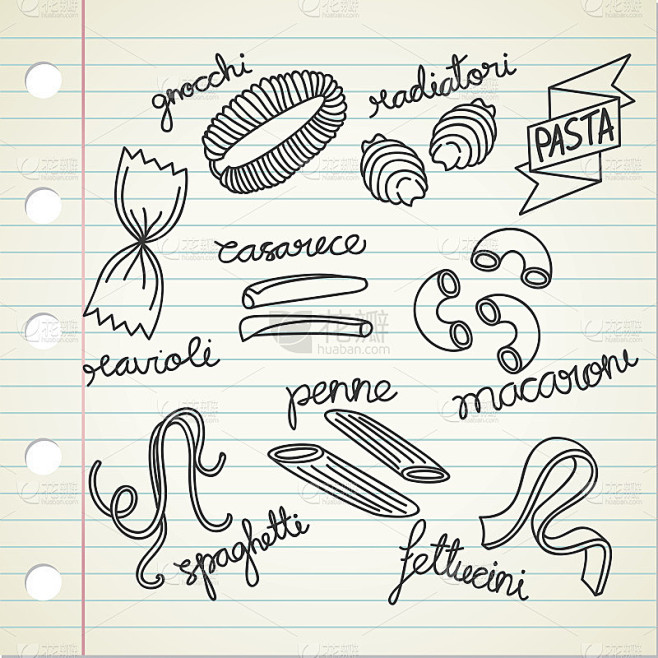 gnocchi
radiatori
PASTA
casarece
ravioli
penne
macaroni
spaghetti
fettucini
花瓣
huaban.com